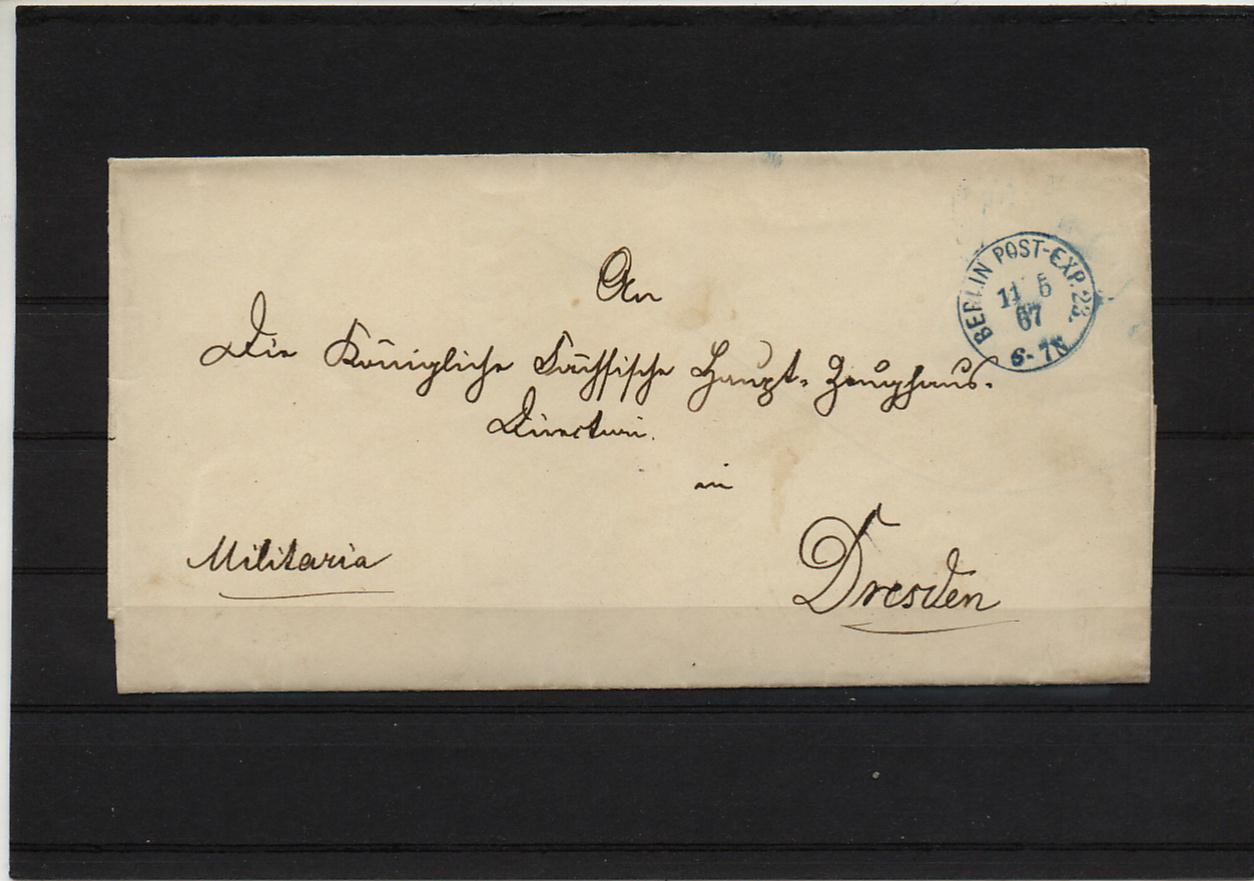 BERLIN POST-EXP. 23.
11 5
67
6-7N
An
Die Königliche Sächsische Haupt-Zeughaus-
Direction.
in
Dresden
Militaria